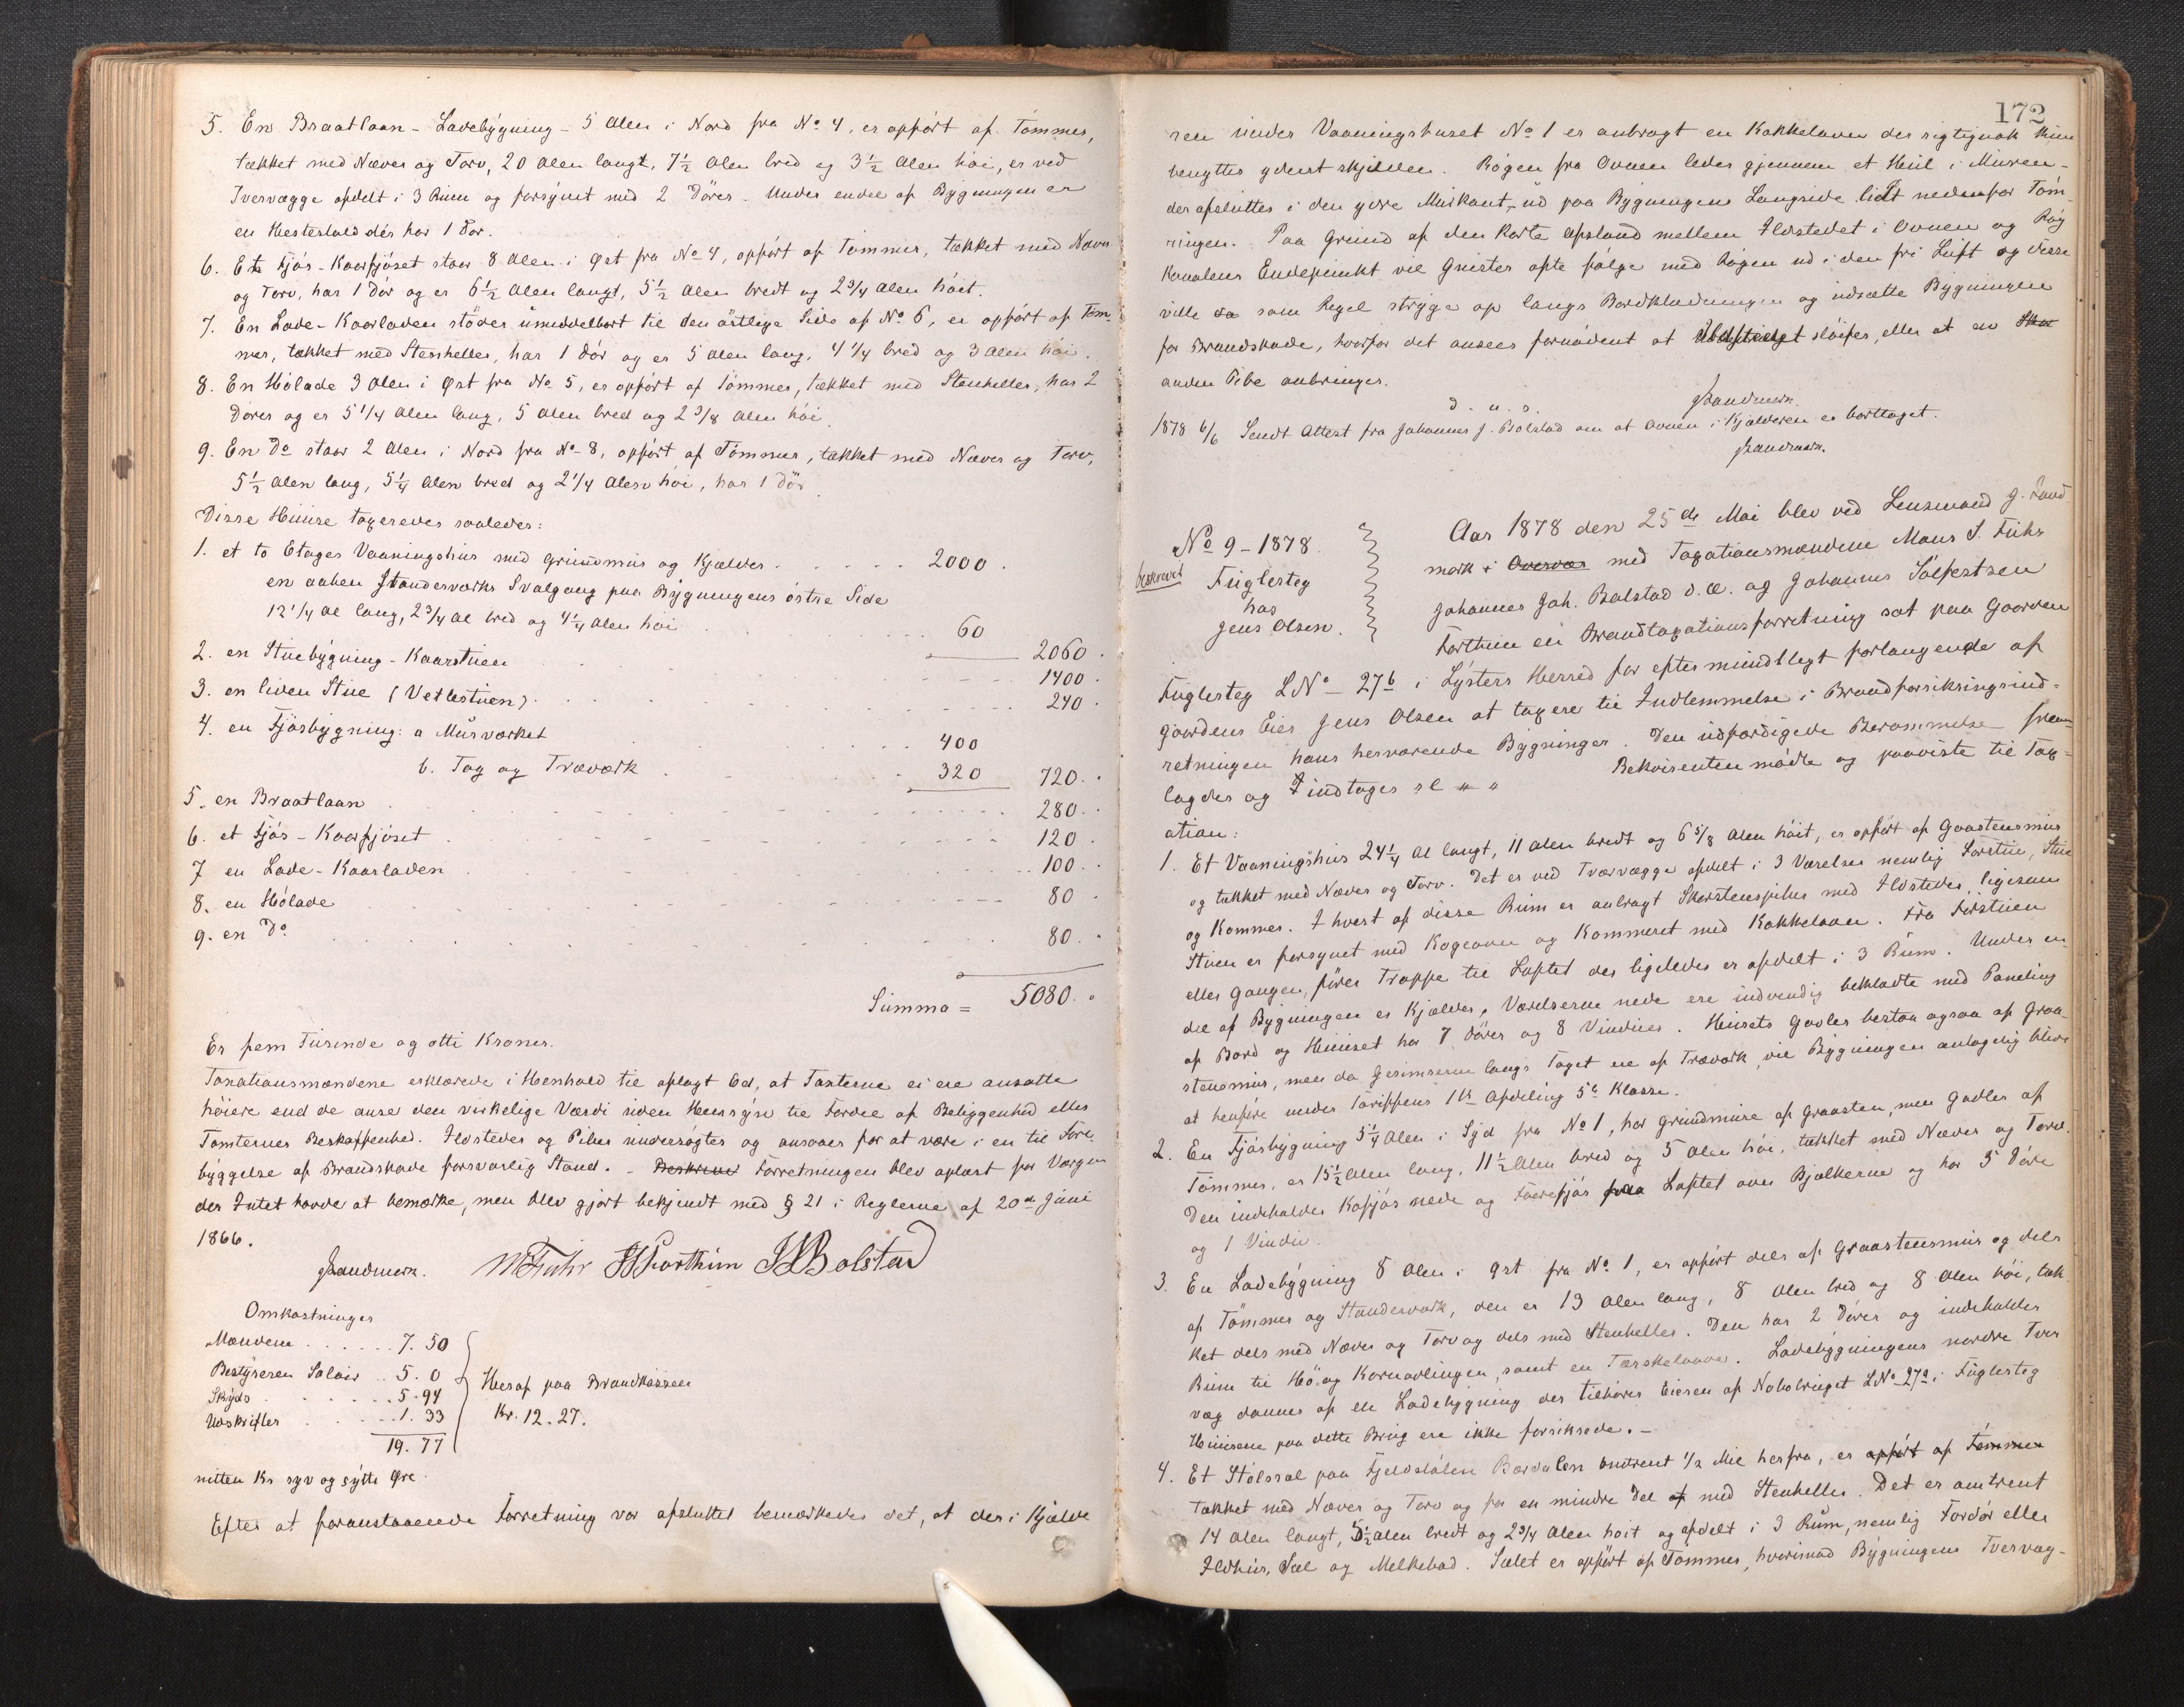 5. En Braatlaan - Ladebygning - 5 Alen i Nord fra No 4, er opført af Tømmer,
tækket med Næver og Torv, 20 Alen langt, 7 1/2 Alen bred og 3 1/2 Alen høi, er ved
Tversvægge afdelt i 3 Rum og forsynet med 2 Dører. Under endel af Bygningen er
en Hestestald der har 1 Dør.
6. Et Fjøs - Kaarfjøset staar 8 Alen i Øst fra No 4, opført af Tømmer, tækket med Næver
og Torv, har 1 Dør og er 6 1/2 Alen langt, 5 1/2 Alen bredt og 2 3/4 Alen høit.
7. En Lade - Kaarladen støder umiddelbart til den østlige Side af No 6, er opført af Tøm-
mer, tækket med Stenheller, har 1 dør og er 5 Alen lang, 4 1/4 bred og 3 Alen høi.
8. En Hølade 3 Alen i Øst fra No 5, er opført af Tømmer, tækket med Stenheller, har 2
Dører og er 5 1/4 Alen lang, 5 Alen bred og 2 3/8 Alen høi
9. En Do staar 2 Alen i Nord fra No 8, opført af Tømmer, tækket med Næver og Torv,
5 1/2 Alen lang, 5 1/4 Alen bred og 2 1/4 Alen høi, har 1 dør
Disse Huuse taxeredes saaledes:
1. et to Etages Vaaningshus med Grundmur og Kjælder . . . . . 2000 .
en aaben Standerværks Svalgang paa Bygningens østre Side
12 1/4 Al lang, 2 3/4 Al bred og 4 1/4 Alen høi . . . . 60
2060 .
2. en Stuebygning - Kaarstuen 1400 .
3. en liden Stue (Vetlestuen) . 240 .
4. en Fjøsbygning: a Murværket 400
b. Tag og Træværk . 320 720. .
5. en Braatlaan 280. .
6. et Fjøs - Kaarfjøset 120 .
7 en Lade - Kaarladen 100. .
8. en Hølade 80 .
9. en Do 80. .
Summa = 5080. .
Er fem Tusinde og otti Kroner.
Taxationsmændene erklærede i Henhold til aflagt Ed, at Taxterne ei ere ansatte
høiere end de anse den virkelige Værdi uden Hensyn til Fordel af Beliggenhed eller
Tomternes Beskaffenhed. Ildsteder og Piber undersøgtes og ansaaes for at være i en til Fore-
byggelse af Brandskade forsvarlig Stand. - Beskrevet Forretningen blev oplæst for Værgen
der Intet havde at bemærke, men blev gjort bekjendt med § 21 i Reglerne af 20de Juni
1866.
JSandmark. M Fuhr JJ Forthun JJBolstad
Omkostninger
Mændene . . . . . . 7. 50
Bestyreren Salair . . 5. 0
Skyds . . . . . 5. 94
Udskrifter . . . . . 1. 33
19. 77
Heraf paa Brandkassen
Kr. 12. 27.
nitten Kr syv og sytti Øre.
Efter at foranstaaende Forretning var afsluttet bemærkedes det, at der i Kjælde
172
ren under Vaaningshuset No 1 er anbragt en Kakkelovn der rigtignok kun
benyttes yderst skjelden. Røgen fra Ovnen ledes gjennem et Hul i Muren -
der afsluttes i den ydre Murkant - ud paa Bygningens Langside lidt nedenfor Tøm-
ringen. Paa Grund af den korte Afstand mellem Ildstedet i Ovnen og Røg
kanalens Endepunkt vil Gnister ofte følge med Røgen ud i den fri Luft og disse
ville da som Regel stryge op langs Bordklædningen og udsætte Bygningen
for Brandskade, hvorfor det ansees fornødent at Ildstedet sløifes, eller at en
anden Pibe anbringes.
D. u. s. JSandmark.
1878 6/6 Sendt Attest fra Johannes J. Bolstad om at Ovnen i Kjælderen er borttaget.
JSandmark.
No 9 - 1878.
beskrevet Fuglesteg
hos
Jens Olsen.
Aar 1878 den 25de Mai blev ved Lensmand J. Sand
mark i Overvær med Taxationsmændene Mons S. Fuhr
Johannes Joh. Bolstad d. æ. og Johannes Sølfestsen
Forthun en Brandtaxationsforretning sat paa Gaarden
Fuglesteg LNo 27b i Lysters Herred for efter mundtlegt forlangende af
Gaardens Eier Jens Olsen at taxere til Indlemmelse i Brandforsikringsind-
retningen hans herværende Bygninger. Den udfærdigede Berammelse frem-
lagdes og indtages sl " " Rekvirenten mødte og paaviste til Tax-
ation:
1. Et Vaaningshus 24 1/4 Al langt, 11 Alen bredt og 6 5/8 Alen høit, er opført af Graastensmur
og tækket med Næver og Torv. Det er ved Tværvægge afdelt i 3 Værelser nemlig Forstue, Stue
og Kammer. I hvert af disse Rum er anbragt Skorstenspiber med Ildsteder, ligesom
Stuen er forsynet med Kogeovn og Kammeret med Kakkelovn. Fra Forstuen
eller Gangen, fører Trappe til Loftet der ligeledes er afdelt i 3 Rum. Under en
del af Bygningen er Kjælder, Værelserne nede ere indvendig beklædte med Paneling
af Bord og Huuset har 7 Dører og 8 Vinduer. Husets Gavler bestaa ogsaa af Graa-
stensmur, men da Gesimserne langs Taget ere af Træværk, vil Bygningen antagelig blive
at henføre under Tariffens 1ste Afdeling 5te Klasse.
2. En Fjøsbygning 5 1/4 Alen i Syd fra No 1, har Grundmure af Graasten, men Gavler af
Tømmer, er 15 1/2 Alen lang, 11 1/2 Alen bred og 5 Alen høi, tækket med Næver og Torv.
Den indeholder Kofjøs nede og Faarefjøs paa Loftet over Bjælkerne og har 5 Døre
og 1 Vindu.
3. En Ladebygning 8 Alen i Øst fra No 1, er opført dels af Graastensmur og dels
af Tømmer og Standerværk, den er 13 Alen lang, 8 Alen bred og 8 Alen høi, tæk
ket dels med Næver og Torv og dels med Stenheller. Den har 2 Dører og indeholder
Rum til Hø- og Kornavlingen, samt en Tærskelaave. Ladebygningens nordre Tver
væg dannes af en Ladebygning der tilhører Eieren af Nabobruget LNo 27a i Fuglesteg
Huusene paa dette Brug ere ikke forsikrede. -
4. Et Stølssel paa Fjeldstølen omtrent 1/2 Mil herfra, er opført af Tømmer
tækket med Næver og Torv og for en mindre Del af med Stenheller. Det er omtrent
14 Alen langt, 5 1/2 Alen bredt og 2 3/4 Alen høit og afdelt i 3 Rum, nemlig Fordør eller
Ildhus, Sel og Melkebod. Selet er opført af Tømmer, hvorimod Bygningens Tversvæg-